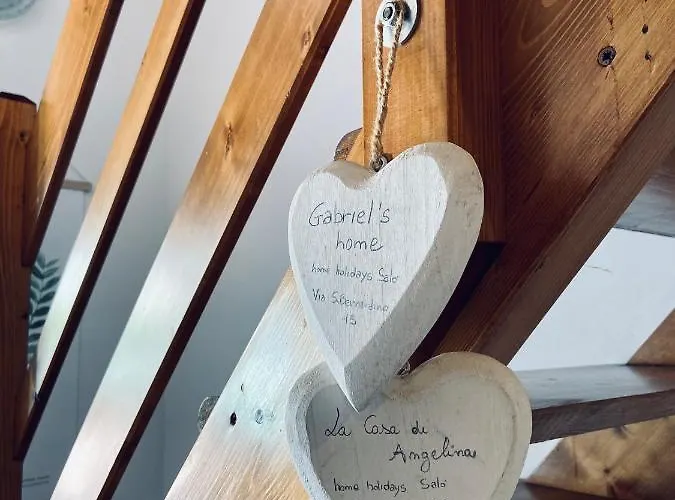 Gabriel's
home
home holidays Salò
Via S.Bernardino
15
La Casa di
Angelina
home holidays Salò